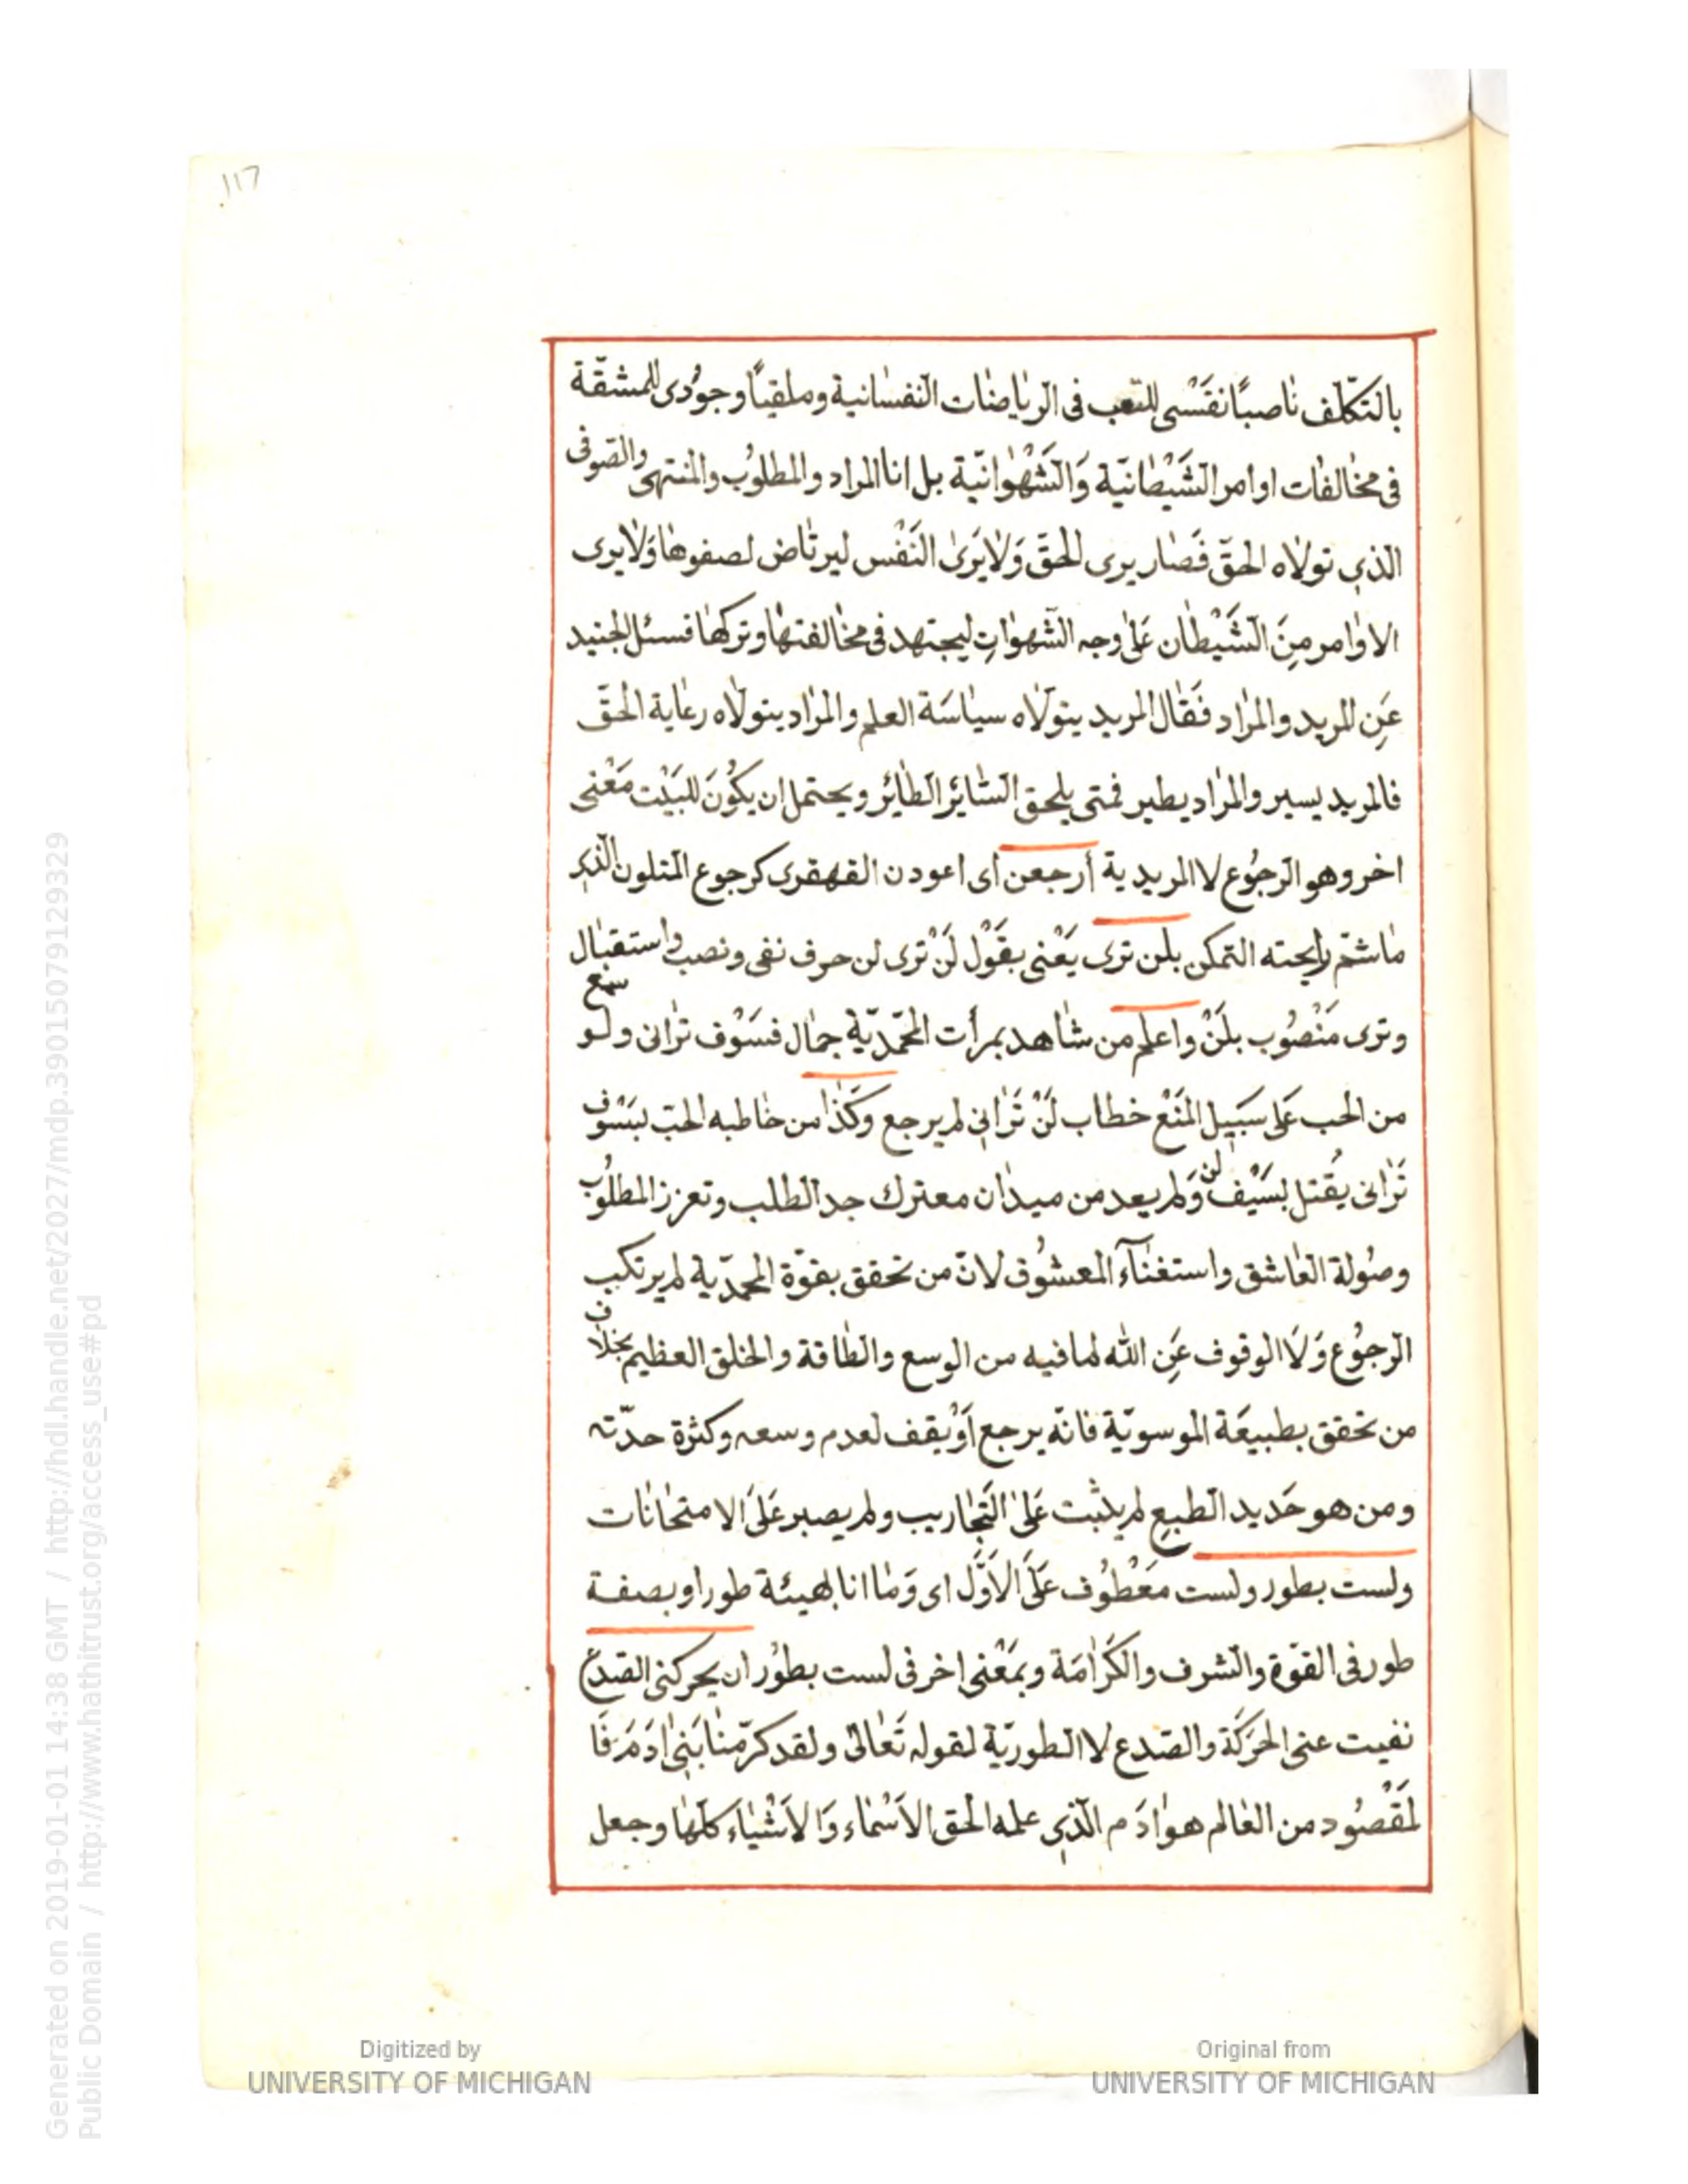 117
بالتكلّف ناصبًا نفسى للتعب فى الرياضات النفسانية وملقيًا وجودى للمشقّة
فى مخالفات اوامر الشَيْطانيّة وَالشَهْوانيّة بل انا المراد والمطلوب والمنتهى والصوفى
الذى تولاه الحقّ فَصَار يرى الحقّ وَلايَرىٰ النَفْس ليرتاض لصفوها وَلايرى
الاوامر مِنَ الشَيْطان عَلىٰ وجه الشهواتِ ليجتهد فى مخالفتها وتركها فسئل الجنيد
عَنِ المريد والمراد فَقال المريد يتولاه سياسَة العلم والمراد يتولاه رعاية الحقّ
فالمريد يسير والمراد يطير فمتى يلحق السّائر الطائر ويحتمل ان يكُونَ للبَيْت مَعْنى
اخر وهو الرجوُع لا المريدية أرجعن اى اعودن القهقرى كرجوع المتلون الذى
ماشمّ رايحته التمكن بلن ترى يَعْنى بقَوْل لَنْ ترى لن حرف نفى ونصب واستقبال
وترى مَنْصُوب بلَنْ واعلم من شاهد بمرأت المحمّديّة جمال فسَوْف ترانى ولو سمع
من الحب عَلى سَبيل المَنْع خطاب لَنْ تَرانى لم يرجع وَكَذا من خاطبه الحبّ بسَوْف
تَرانى يقُتل بسَيْف لن وَلم يعد من ميدان معترك جد الطلب وتعزز المطلوُب
وصُولة العاشق واستغناآء المعشوُق لانّ من تحقق بقوّة المحمّديّة لم يرتكب
الرجوُع وَلَا الوقوف عَنِ الله لما فيه من الوسع والطاقة والخلق العظيم بخلاف
من تحقق بطبيعَة الموسويّة فانّه يرجع اَوْيقف لعدم وسعه وكثرة حدّته
ومن هو حَديد الطبع لم يثبت عَلىٰ التجاريب ولم يصبر عَلىَ الامتحانات
ولست بطور ولست مَعْطوُف عَلىَ الاَوَّل اى وَمَا انا بهيئة طور او بصفة
طور فى القوّة والشرف والكَرامَة وبمَعْنى اخر فى لست بطوُر ان يحركنى الصدع
نفيت عنى الحَرَكَة والصدع لا الطوريّة لقوله تَعَالىٰ ولقد كرّمنا بَنىٰ ادَمَ فَا
لمَقْصُود من العالم هو ادَم الذى علمه الحق الاَسْماء وَالاَشْيَاء كلّها وجعل
Generated on 2019-01-01 14:38 GMT / http://hdl.handle.net/2027/mdp.39015079129329
Public Domain / http://www.hathitrust.org/access_use#pd
Digitized by
UNIVERSITY OF MICHIGAN
Original from
UNIVERSITY OF MICHIGAN